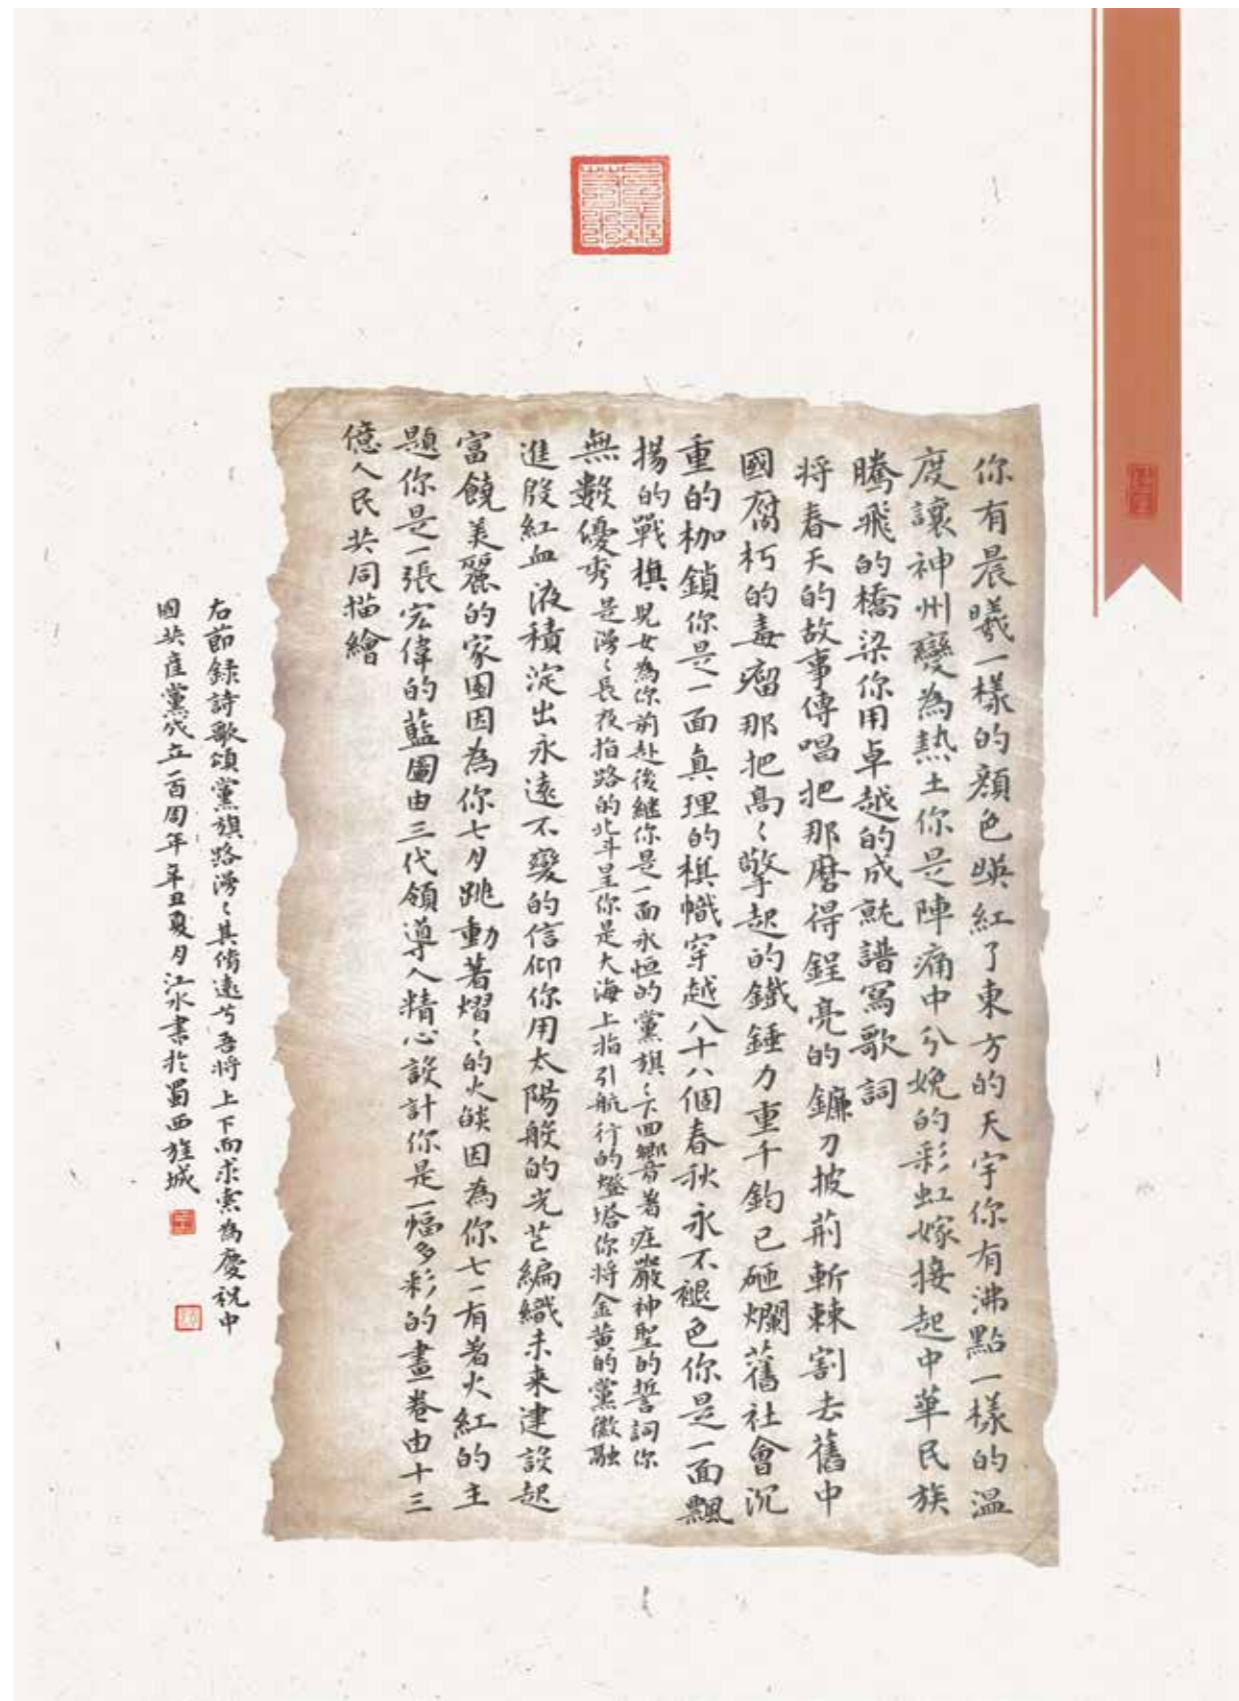 你有晨曦一樣的顏色映紅了東方的天宇你有沸點一樣的溫
度讓神州變為熱土你是陣痛中分娩的彩虹嫁接起中華民族
騰飛的橋梁你用卓越的成就譜寫歌詞
將春天的故事傳唱把那磨得鋥亮的鐮刀披荊斬棘割去舊中
國腐朽的毒瘤那把高〻擎起的鐵錘力重千鈞已砸爛舊社會沉
重的枷鎖你是一面真理的旗幟穿越八十八個春秋永不褪色你是一面飄
揚的戰旗兒女為你前赴後繼你是一面永恒的黨旗〻下回響著莊嚴神聖的誓詞你
無數優秀是漫〻長夜指路的北斗星你是大海上指引航行的燈塔你將金黃的黨徽融
進殷紅血液積淀出永遠不變的信仰你用太陽般的光芒編織未来建設起
富饒美麗的家園因為你七月跳動著熠〻的火焰因為你七一有著火紅的主
題你是一張宏偉的藍圖由三代領導人精心設計你是一幅多彩的畫卷由十三
億人民共同描繪
右節録詩歌頌黨旗路漫〻其脩遠兮吾將上下而求索為慶祝中
國共產黨成立一百周年辛丑夏月江水書於蜀西雅城